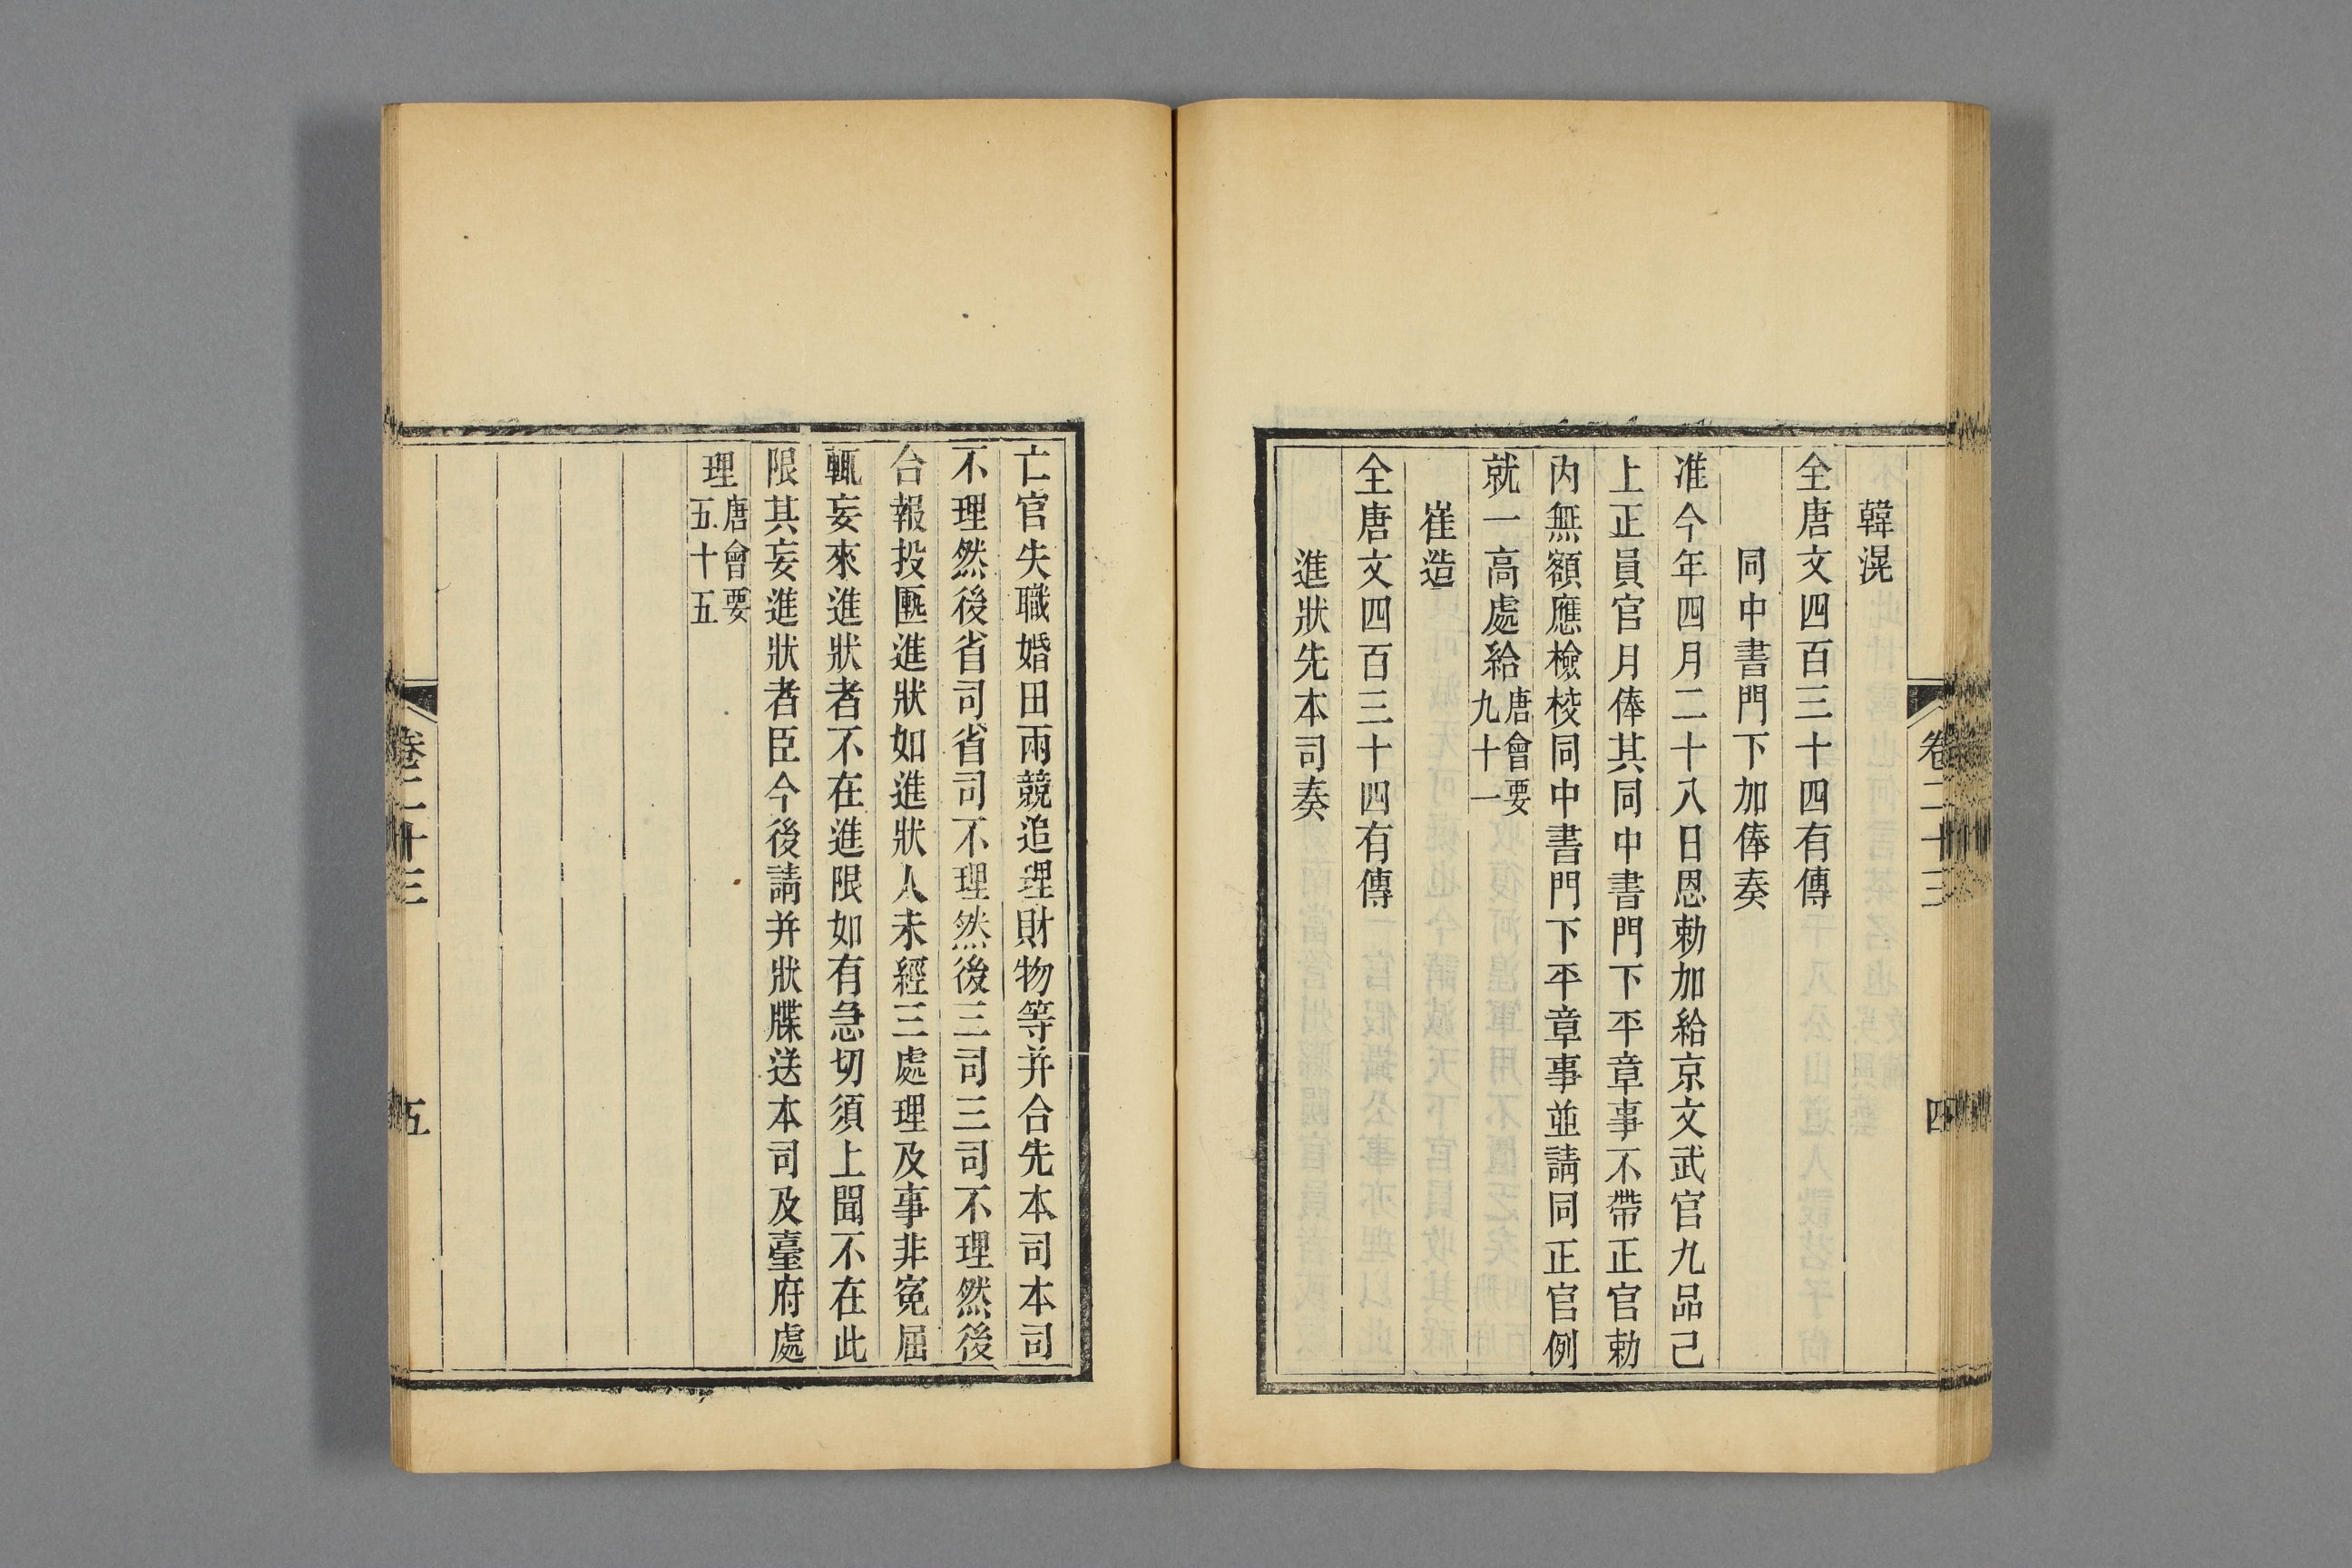 韓滉
全唐文四百三十四有傳
同中書門下加俸奏
准今年四月二十八日恩勅加給京文武官九品已
上正員官月俸其同中書門下平章事不帶正官勅
內無額應檢校同中書門下平章事並請同正官例
就一高處給唐會要九十一
崔造
全唐文四百三十四有傳
進狀先本司奏
卷二十三
四
亡官失職婚田兩競追理財物等并合先本司本司
不理然後省司省司不理然後三司三司不理然後
合報投匭進狀如進狀人未經三處理及事非寃屈
輒妄來進狀者不在進限如有急切須上聞不在此
限其妄進狀者臣今後請并狀牒送本司及臺府處
理唐會要五十五
卷二十三
五